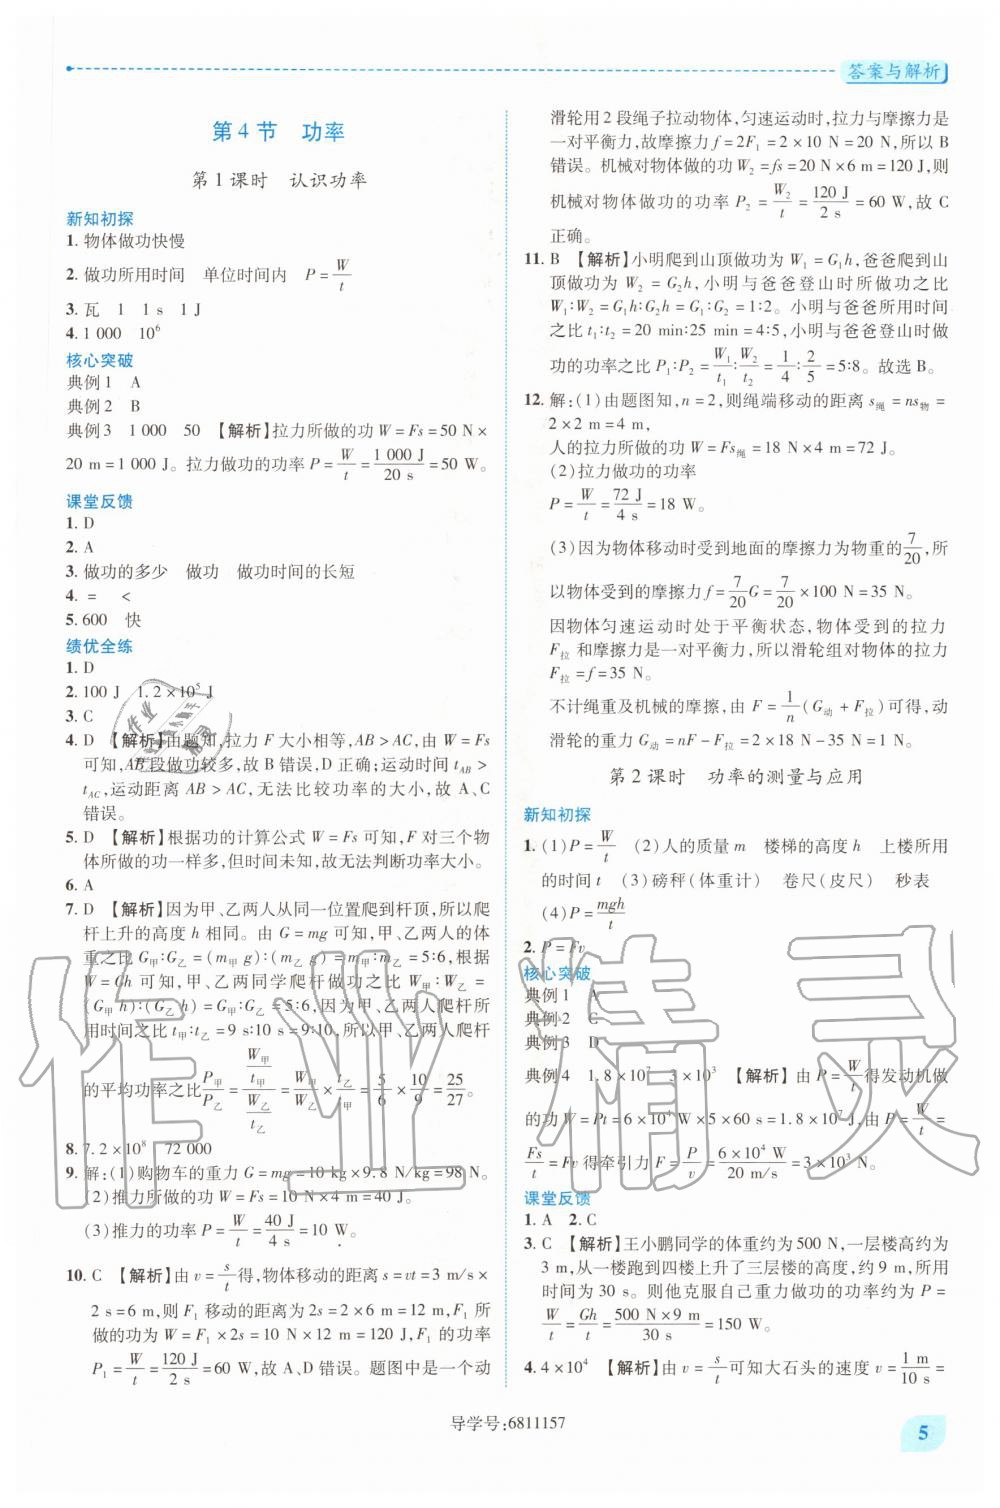 答案与解析
第4节　功率
第1课时　认识功率
新知初探
1. 物体做功快慢
2. 做功所用时间　单位时间内　P=W/t
3. 瓦　1　1 s　1 J
4. 1 000　10⁶
核心突破
典例1　A
典例2　B
典例3　1 000　50　【解析】拉力所做的功W=Fs=50 N×
20 m=1 000 J。拉力做功的功率P=W/t=1 000 J/20 s=50 W。
课堂反馈
1. D
2. A
3. 做功的多少　做功　做功时间的长短
4. =　<
5. 600　快
绩优全练
1. D
2. 100 J　1.2×10⁵ J
3. C
4. D　【解析】由题知,拉力F大小相等,AB>AC,由W=Fs
可知,AB段做功较多,故B错误,D正确;运动时间t_AB>
t_AC,运动距离AB>AC,无法比较功率的大小,故A、C
错误。
5. D　【解析】根据功的计算公式W=Fs可知,F对三个物
体所做的功一样多,但时间未知,故无法判断功率大小。
6. A
7. D　【解析】因为甲、乙两人从同一位置爬到杆顶,所以爬
杆上升的高度h相同。由G=mg可知,甲、乙两人的体
重之比G甲∶G乙=(m甲g)∶(m乙g)=m甲∶m乙=5∶6,根据
W=Gh可知,甲、乙两同学爬杆做功之比W甲∶W乙=
(G甲h)∶(G乙h)=G甲∶G乙=5∶6,因为甲、乙两人爬杆所
用时间之比t甲∶t乙=9 s∶10 s=9∶10,所以甲、乙两人爬杆
的平均功率之比P甲/P乙=(W甲/t甲)/(W乙/t乙)=W甲/W乙×t乙/t甲=5/6×10/9=25/27。
8. 7.2×10⁸　72 000
9. 解:(1)购物车的重力G=mg=10 kg×9.8 N/kg=98 N。
(2)推力所做的功W=Fs=10 N×4 m=40 J。
(3)推力的功率P=W/t=40 J/4 s=10 W。
10. C　【解析】由v=s/t得,物体移动的距离s=vt=3 m/s×
2 s=6 m,则F₁移动的距离为2s=2×6 m=12 m,F₁所
做的功为W=F₁×2s=10 N×12 m=120 J,F₁的功率
P₁=W/t=120 J/2 s=60 W,故A、D错误。题图中是一个动
滑轮用2段绳子拉动物体,匀速运动时,拉力与摩擦力是
一对平衡力,故摩擦力f=2F₁=2×10 N=20 N,所以B
错误。机械对物体做的功W₂=fs=20 N×6 m=120 J,则
机械对物体做功的功率P₂=W₂/t=120 J/2 s=60 W,故C
正确。
11. B　【解析】小明爬到山顶做功为W₁=G₁h,爸爸爬到山
顶做功为W₂=G₂h,小明与爸爸登山时所做功之比
W₁∶W₂=G₁h∶G₂h=G₁∶G₂=1∶2。小明与爸爸所用时间
之比t₁∶t₂=20 min∶25 min=4∶5,小明与爸爸登山时做
功的功率之比P₁∶P₂=W₁/t₁∶W₂/t₂=1/4∶2/5=5∶8。故选B。
12. 解:(1)由题图知,n=2,则绳端移动的距离s绳=ns物=
2×2 m=4 m,
人的拉力所做的功W=Fs绳=18 N×4 m=72 J。
(2)拉力做功的功率
P=W/t=72 J/4 s=18 W。
(3)因为物体移动时受到地面的摩擦力为物重的7/20,所
以物体受到的摩擦力f=7/20G=7/20×100 N=35 N。
因物体匀速运动时处于平衡状态,物体受到的拉力
F拉和摩擦力是一对平衡力,所以滑轮组对物体的拉力
F拉=f=35 N。
不计绳重及机械的摩擦,由F=1/n(G动+F拉)可得,动
滑轮的重力G动=nF-F拉=2×18 N-35 N=1 N。
第2课时　功率的测量与应用
新知初探
1. (1)P=W/t　(2)人的质量m　楼梯的高度h　上楼所用
的时间t　(3)磅秤(体重计)　卷尺(皮尺)　秒表
(4)P=mgh/t
2. P=Fv
核心突破
典例1　A
典例2　C
典例3　D
典例4　1.8×10⁷　3×10³　【解析】由P=W/t得发动机做
的功W=Pt=6×10⁴ W×5×60 s=1.8×10⁷ J,由P=W/t=
Fs/t=Fv得牵引力F=P/v=6×10⁴ W/20 m/s=3×10³ N。
课堂反馈
1. A　2. C
3. C　【解析】王小鹏同学的体重约为500 N,一层楼高约为
3 m,从一楼跑到四楼上升了三层楼的高度,约9 m,所用
时间为30 s。则他克服自己重力做功的功率约为P=
W/t=Gh/t=500 N×9 m/30 s=150 W。
4. 4×10⁴　【解析】由v=s/t可知大石头的速度v=1 m/10 s=
导学号:6811157
5
作业精灵